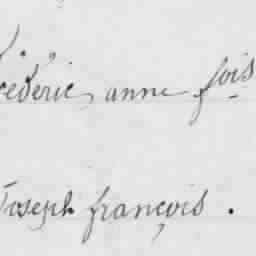 fréderic, anne fois
Joseph françois.